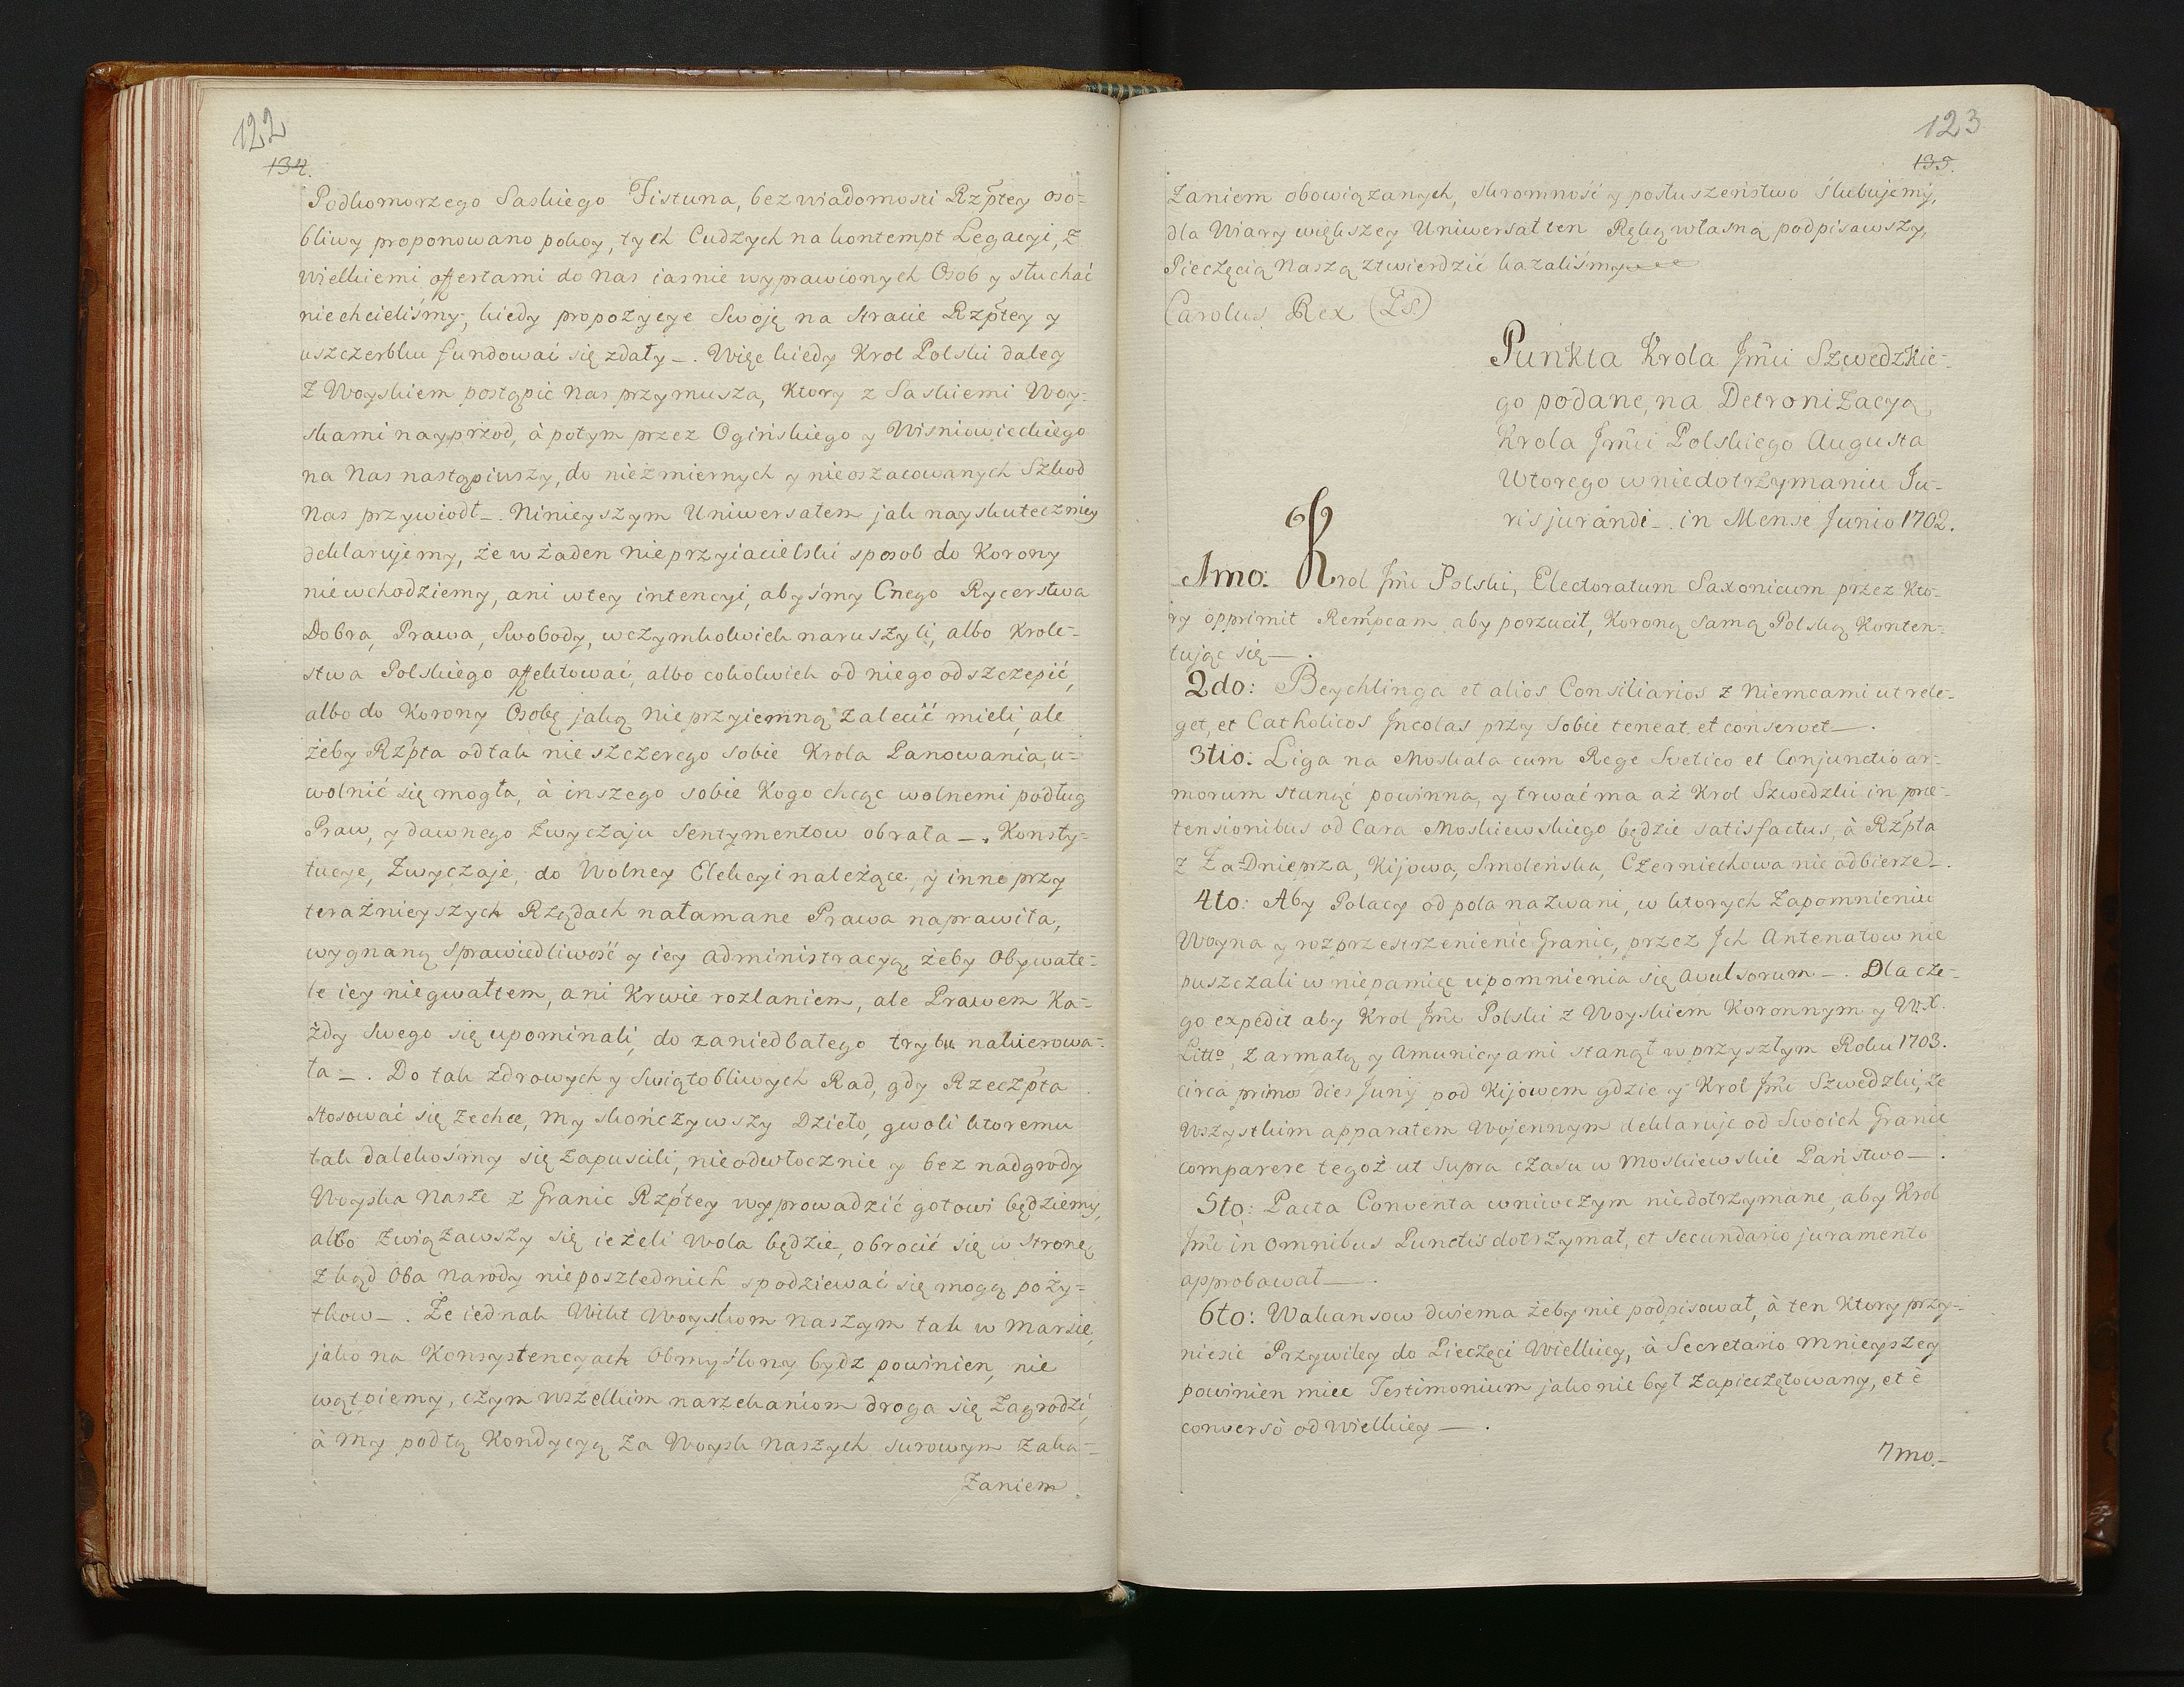 122
134.
Podkomorzego Saskiego Fistuna, bez wiadomosci Rzptey oso-
bliwy proponowano pokoy, tych Cudzych na kontempt Legacyi, z
wielkiemi offertami do nas iasnie wyprawionych Osob y słuchać
niechcieliśmy, kiedy propozycye Swoją na stracie Rzptey y
uszczerbku fundować się zdały _. Więc kiedy Krol Polski daley
z Woyskiem postąpić nas przymusza, Ktory z Saskiemi Woy-
skami nayprzod, à potym przez Ogińskiego y Wisniowieckiego
na Nas nastąpiwszy, do niezmiernych y nieoszacowanych Szkod
Nas przywiodł _. Ninieyszym Uniwersałem jak nayskuteczniey
deklarujemy, że w żaden nieprzyiacielski sposob do Korony
niewchodziemy, ani w tey intencyi, abyśmy Cnego Rycerstwa
Dobra, Prawa, Swobody, wczymkolwiek naruszyli, albo Krole-
stwa Polskiego affektować, albo cokolwiek od niego odszczepić,
albo do Korony Osobę jaką nieprzyiemną zalecić mieli, ale
żeby Rzpta od tak nieszczerego sobie Krola Panowania, u-
wolnić się mogła, à inszego sobie Kogo chcąc wolnemi podług
Praw, y dawnego zwyczaju Sentymentow obrała _. Konsty-
tucye, Zwyczaje, do Wolney Elekcyi należące, y inne przy
teraźnieyszych Rządach nałamane Prawa naprawiła,
wygnaną Sprawiedliwość y iey administracyą, żeby Obywate-
le iey niegwałtem, ani Krwie rozlaniem, ale Prawem Ka-
żdy Swego się upominali, do zaniedbałego trybu nakierowa-
ła _. Do tak zdrowych y Swiątobliwych Rad, gdy Rzeczpta
stosować się zechce, my skończywszy Dzieło, gwoli ktoremu
tak dalekośmy się zapuscili, nieodwłocznie y bez nadgrody
Woyska Nasze z Granic Rzptey wyprowadzić gotowi będziemy,
albo związawszy się ieżeli wola będzie, obrocić się w stronę
zkąd Oba Narody nieposzlednich spodziewać się mogą poży-
tkow _. Ze iednak Wikt Woyskom Naszym tak w marsie,
jako na Konsystencyach Obmyślony bydz powinien, nie
wątpiemy, czym wszelkim narzekaniom droga się zagrodzi,
à my podtą Kondycyą za Woysk Naszych surowym zaka-
zaniem
123
135.
zaniem obowiązanych, skromność y posłuszeństwo ślubujemy,
dla Wiary większey Uniwersał ten Ręką własną podpisawszy,
Pieczęcią Naszą ztwierdzić kazaliśmy
Carolus Rex (LS.)
Punkta Krola Jmci Szwedzkie-
go podane, na Detronizacyą
Krola Jmci Polskiego Augusta
Wtorego w niedotrzymaniu Ju-
risjurandi _. in Mense Junio 1702.
1mo: Krol Jmc Polski, Electoratum Saxonicum przez Kto-
ry opprimit Rempcam aby porzucił, Koroną samą Polską Konten-
tując się _.
2do: Beychlinga et alios Consiliarios z Niemcami ut rele-
get, et Catholicos Incolas przy sobie teneat et conservet _.
3tio: Liga na Moskala cum Rege Svetico et Conjunctio ar-
morum stanąć powinna, y trwać ma aż Krol Szwedzki in præ-
tensionibus od Cara Moskiewskiego będzie satisfactus, à Rzpta
z Za-Dnieprza, Kijowa, Smoleńska, Czerniechowa nie odbierze _.
4to: Aby Polacy od pola nazwani, w ktorych zapomnieniu
Woyna y rozprzestrzenienie Granic, przez Ich Antenatow nie
puszczali w niepamięc upomnienia się avulsorum _. Dla cze-
go expedit aby Krol Jmc Polski z Woyskiem Koronnym y W.X.
Litto, z armatą y amunicyami stanął w przyszłym Roku 1703.
circa primos dies Junij pod Kijowem gdzie y Krol Jmc Szwedzki, ze
wszystkim apparatem Wojennym deklaruje od Swoich Granic
comparere tegoż ut supra czasu w Moskiewskie Państwo _.
5to: Pacta Conventa wniwczym niedotrzymane, aby Krol
Jmc in omnibus Punctis dotrzymał, et secundario juramento
approbował _.
6to: Wakansow dwiema żeby nie podpisował, à ten Ktory przy-
niesie Przywiley do Pieczęci Wielkiey, à Secretario Mnieyszey
powinien miec Testimonium jako nie był zapieczętowany, et è
conversò od Wielkiey _.
7mo.